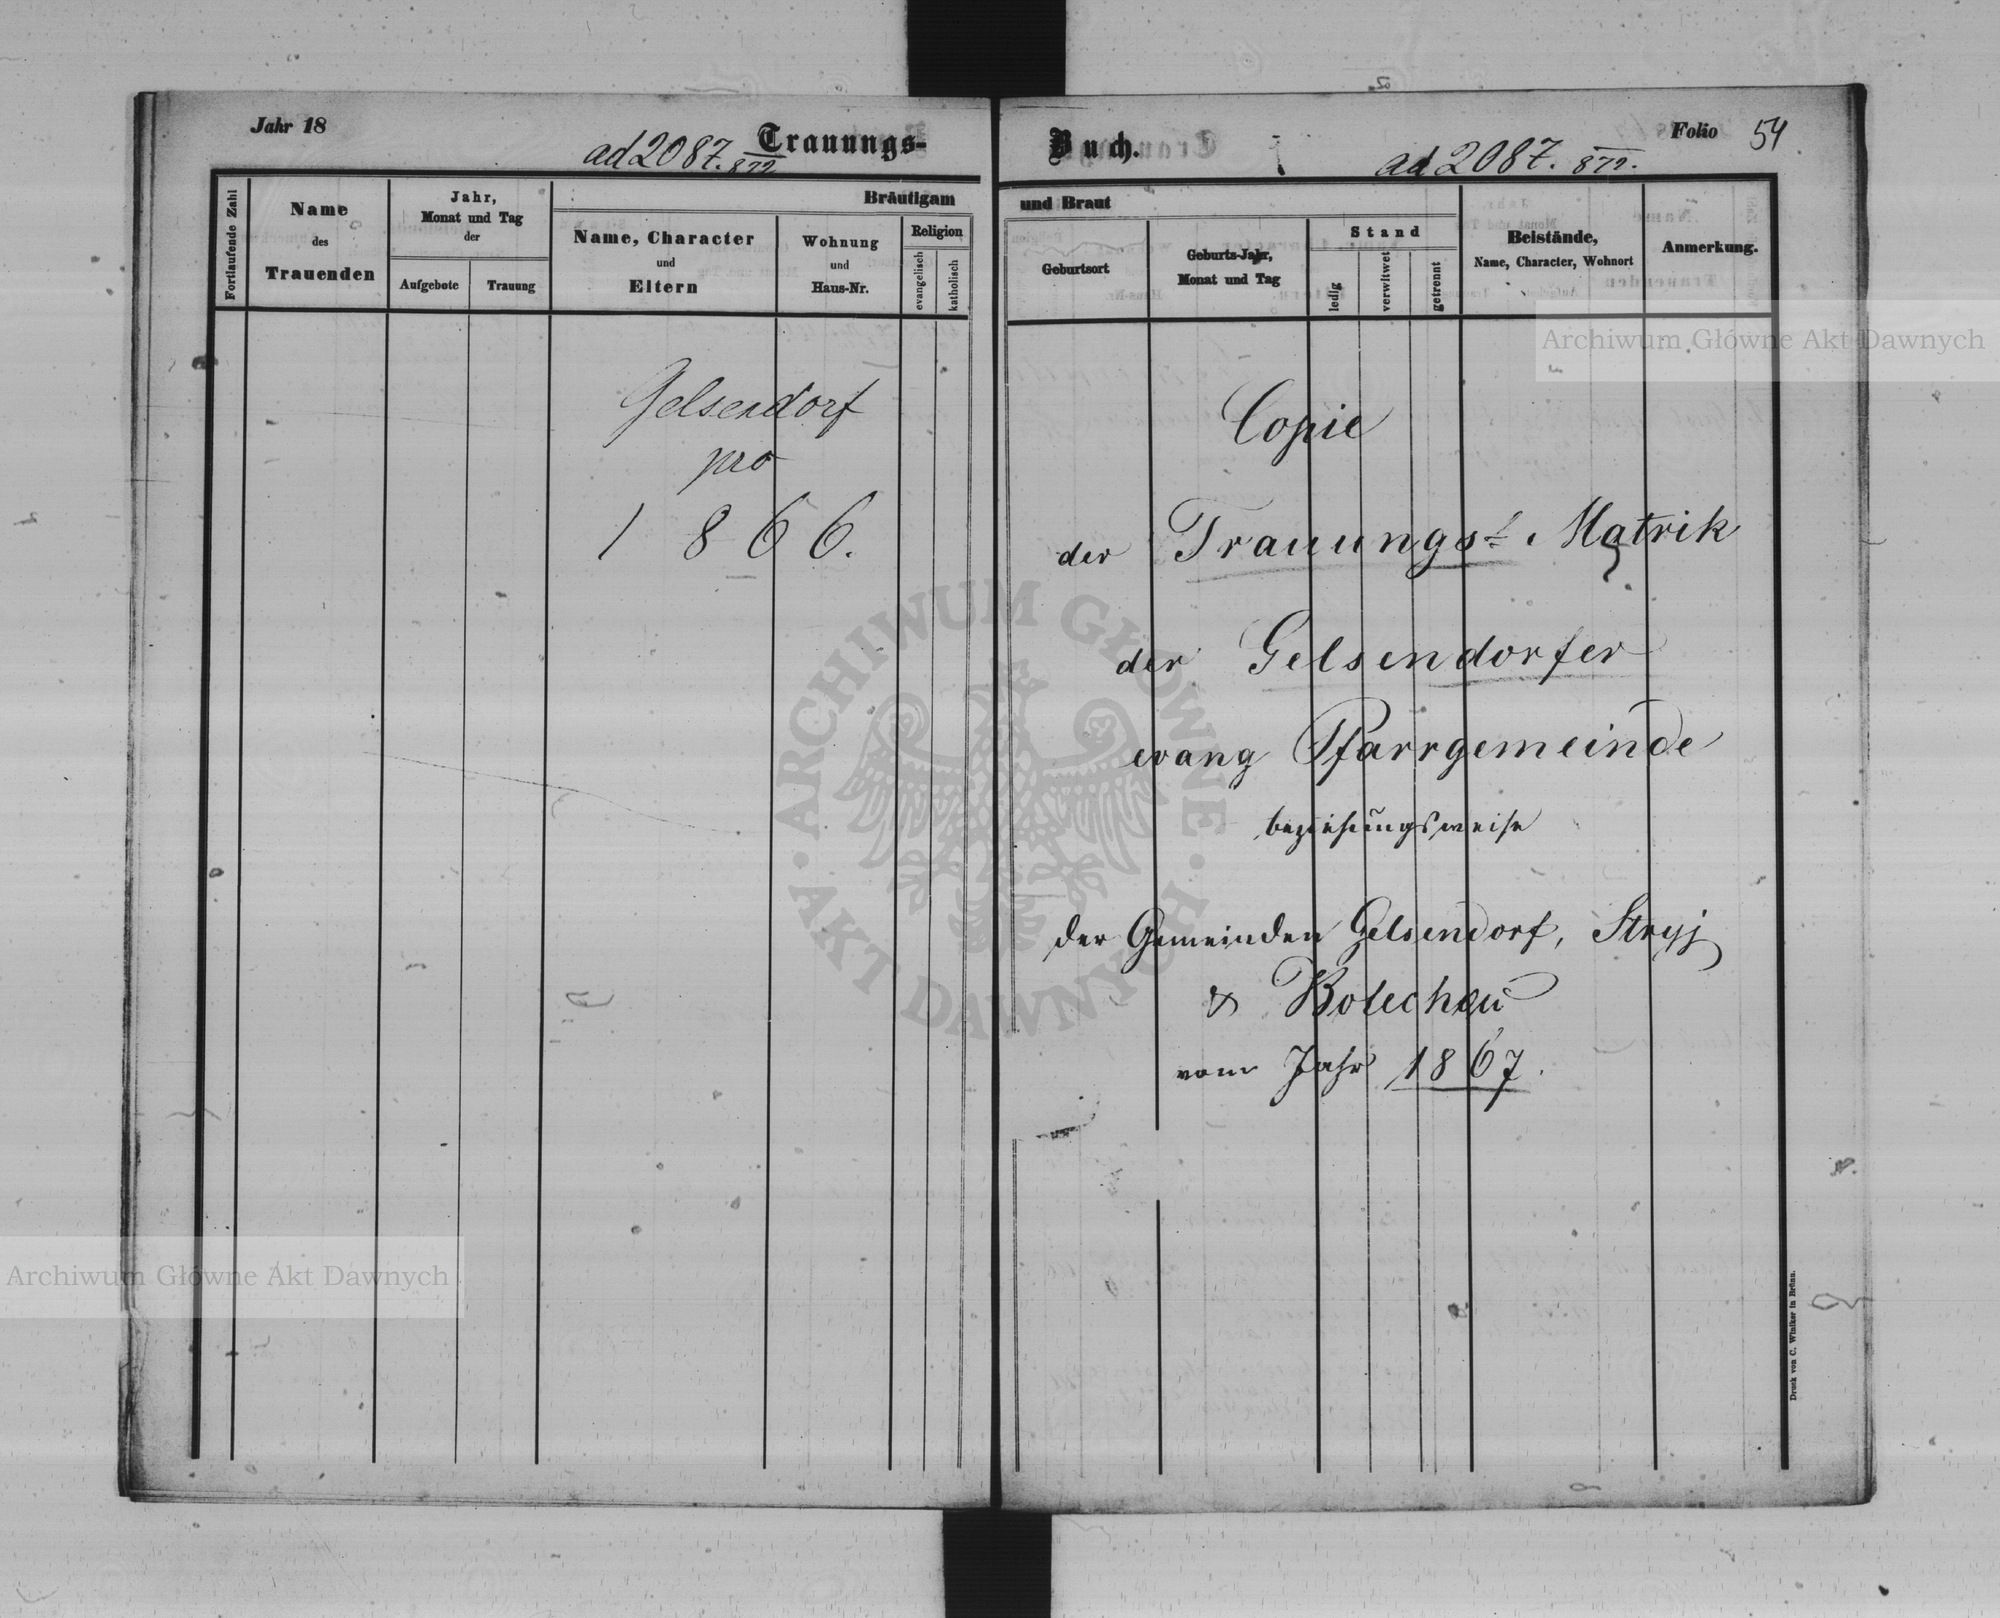 Jahr 18
Trauungs-
ad 2087. 872
Bräutigam
Fortlaufende Zahl
Name
des
Trauenden
Jahr,
Monat und Tag
der
Aufgebote
Trauung
Name, Character
und
Eltern
Wohnung
und
Haus-Nr.
Religion
evangelisch
katholisch
Gelsendorf
pro
1866.
Buch.
Folio 54
ad 2087. 872.
und Braut
Geburtsort
Geburts-Jahr,
Monat und Tag
Stand
ledig
verwitwet
getrennt
Beistände,
Name, Character, Wohnort
Anmerkung.
Copie
der Trauungs- Matrik
der Gelsendorfer
evang Pfarrgemeinde
beziehungsweise
der Gemeinden Gelsendorf, Stryj
& Bolechau
vom Jahr 1867.
Druck von C. Winiker in Brünn.
Archiwum Główne Akt Dawnych
ARCHIWUM GŁÓWNE · AKT DAWNYCH ·
Archiwum Główne Akt Dawnych